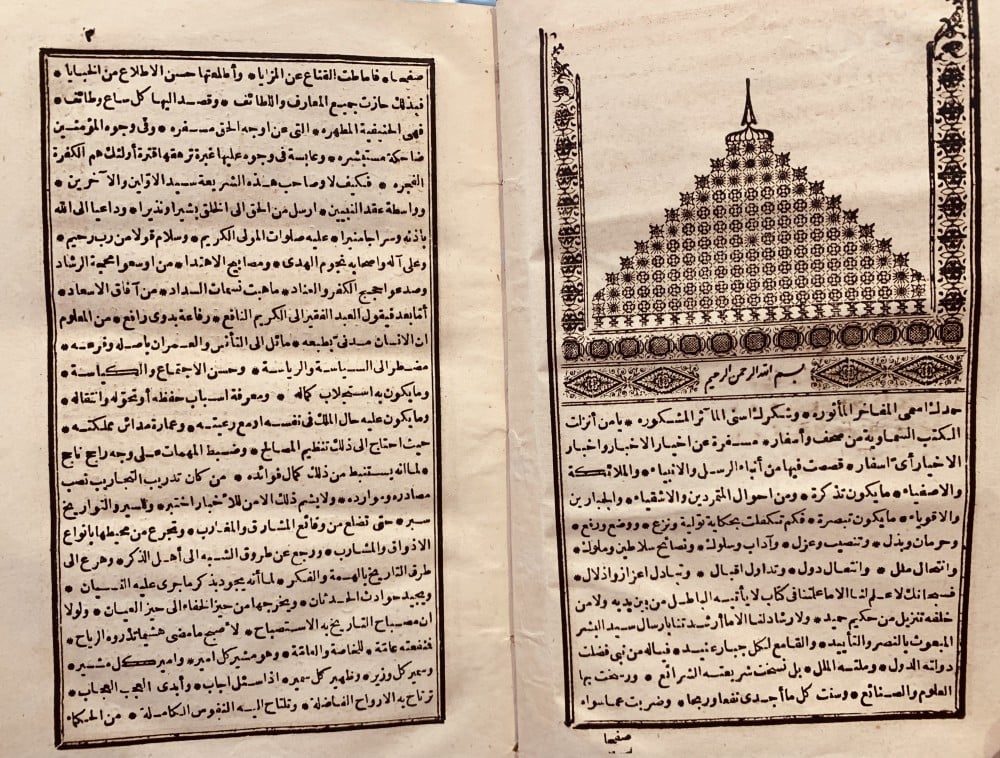 بسم الله الرحمن الرحيم
حمدا لمن المفاخر المأثوره • وشكرا لمن المآثر المشكوره • يا من أنزلت
الكتب السماوية من صحف وأسفار • مسفرة عن أخبار الاخيار واخبار
الاخبار أى اسفار • قصصت فيها من أنباء الرسل والانبياء • والملائكة
والاصفياء • مايكون تذكرة • ومن احوال المتمردين والاشقياء • والجبارين
والاقوياء • مايكون تبصرة • فكم تكفلت بحكاية تولية ونزع • ووضع ورفع •
وحرمان وبذل • وتنصيب وعزل • وآداب وسلوك • ونصائح سلاطين وملوك •
وانتحال ملل • وانتحال دول • وتداول اقبال • وتبادل اعزاز واذلال •
فسبحانك لا علم لنا الا ما علمتنا فى كتاب لا يأتيه الباطل من بين يديه ولا من
خلفه تنزيل من حكيم حميد • ولا رشاد لنا الا ما أرشدتنا بارسال سيد البشر
المبعوث بالنصر والتأييد • والقامع لكل جبار عنيد • فياله من نبى فضلت
دولته الدول • وملته الملل • بل نسخت شريعته الشرائع • ورسخت بها
العلوم والصنائع • وسنت كل ما أجدى نفعا وربحا • وضربت عما سواه
صفحا
٣
صفحا • فاماطت القناع عن المزايا • وأطلعتها حسن الاطلاع من الخبايا •
فبذلك حازت جميع المعارف واللطائف • وقصد اليها كل ساع وطائف •
فهى الحنيفية المطهره • التى عن اوجه الحق مسفره • وفى وجوه المؤمنين
ضاحكة مستبشره • وعابسة فى وجوه عليها غبرة ترهقها قترة أولئك هم الكفرة
الفجره • فكيف لا وصاحب هذه الشريعة سيد الاولين والآخرين •
وواسطة عقد النبيين • ارسل من الحق الى الخلق بشيرا ونذيرا • وداعيا الى الله
باذنه وسراجا منيرا • عليه صلوات المولى الكريم • وسلام قولا من رب رحيم •
وعلى آله واصحابه نجوم الهدى • ومصابيح الاهتدا • من اوسعوا محجة الرشاد
وصدعوا حجيج الكفر والعناد • ماهبت نسمات السداد • من آفاق الاسعاد •
أما بعد فيقول العبد الفقير الى الكريم النافع • رفاعة بدوى رافع • من المعلوم
ان الانسان مدنى بطبعه • مائل الى التأنس والعمران باصله وفرعه •
مضطر الى السياسة والرياسة • وحسن الاجتماع والكياسة •
ومايكون به استجلاب كماله • ومعرفة اسباب حفظه أو تحوله وانتقاله •
ومايكون عليه حال الملك فى نفسه او مع رعيته • وعمارة مدائن مملكته •
حيث احتاج الى ذلك تنظيم المصالح • وضبط المهمات على وجه راجح ناجح
• لما انه يستنبط من ذلك كمال فوائده • من كان تدريب التجاريب نصب
مصادره وموارده • ولا يشم ذلك الا من للاخبار اختبر • وللسير والتواريخ
سبر • حتى تضلع من وقائع المشارق والمغارب • وتجرع من محيطها بانواع
الاذواق والمشارب • ورجع عن طروق الشبه الى أهل الذكر • وهرع الى
طرق التاريخ بالهمة والفكر • لما أنه يجود بذكر ماجرى عليه الفتيان •
ويجيد حوادث الحدثان • ويخرجها من حيز الخفاء الى حيز العيان • ولولا
ان مصباح التاريخ به الاستصباح • لاصبح مامضى هشيما تذروه الرياح •
فنفعته عامة • للخاصة والعامة • وهو مشير كل امير • وامير كل مشير •
وسمير كل وزير • وظهير كل سمير • اذا سئل اجاب • وأبدى العجب العجاب •
ترتاح به الارواح الفاضلة • وتلتاح اليه النفوس الكاملة • من الحكماء